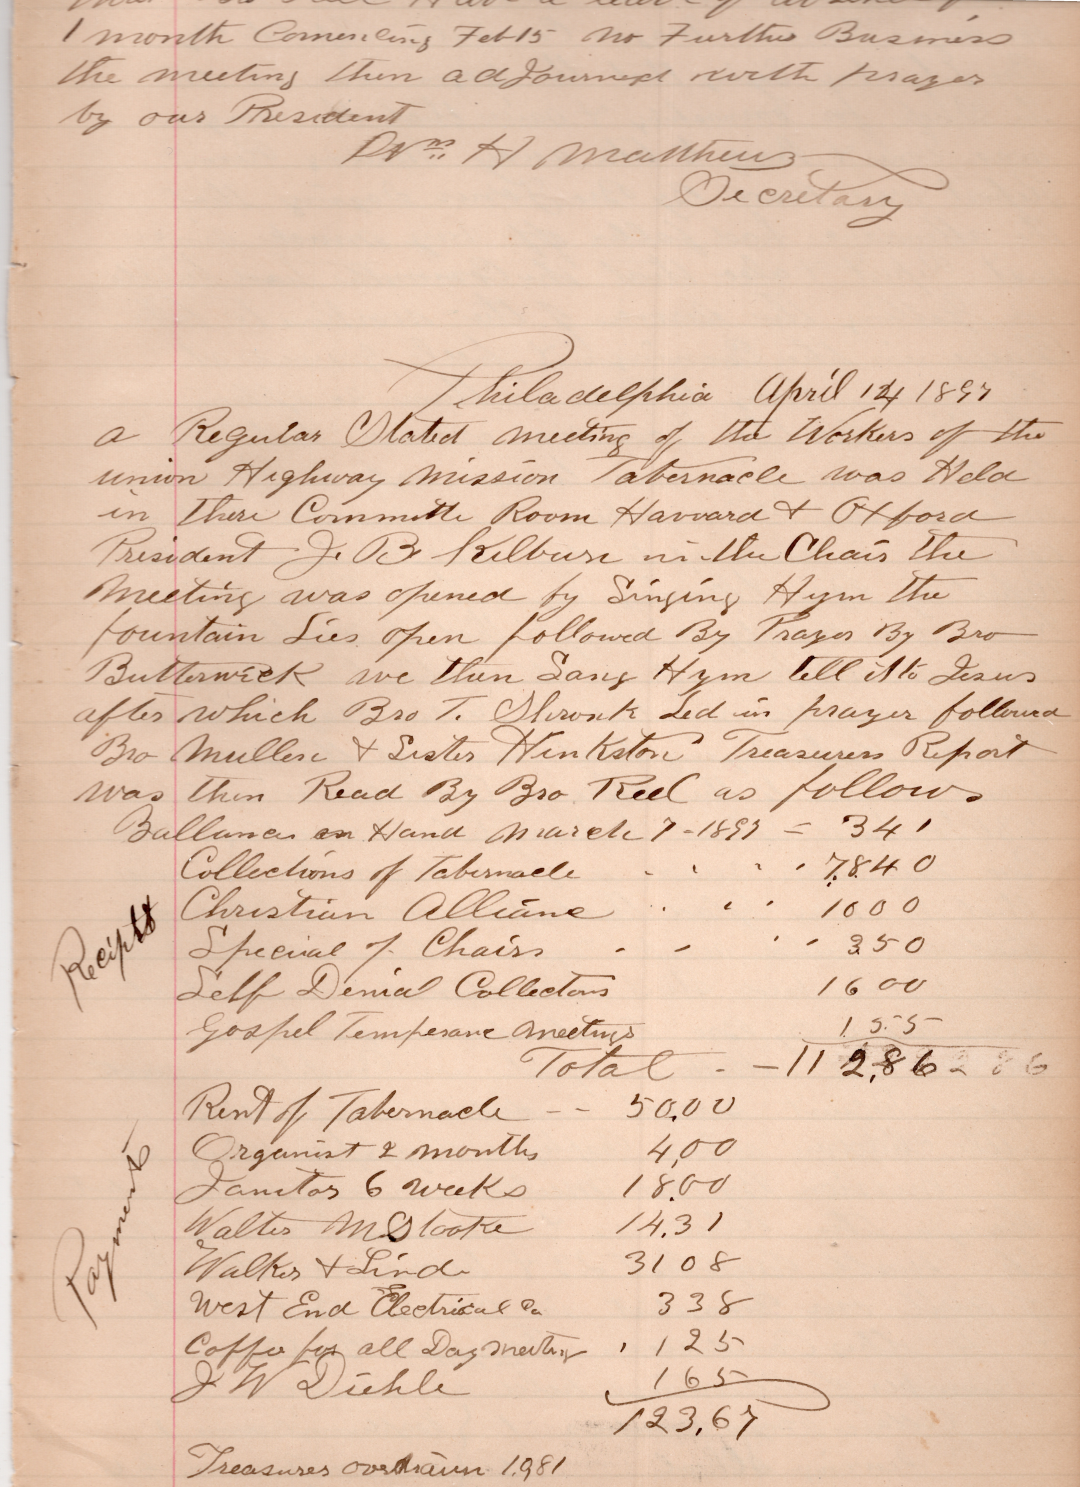 1 month Comencing Feb 15 no Further Business
the meeting then adjourned with prayer
by our President
Wm. H Matthews
Secretary
Philadelphia April 14 1897
a Regular Stated meeting of the Workers of the
union Highway Mission Tabernacle was Held
in there Committe Room Havvard & Oxford
President J. B Kilburn in the Chair the
Meeting was opened by Singing Hym the
fountain Lies open followed By Prayer By Bro
Butterwick we then Sang Hym tell it to Jesus
after which Bro T. Shronk Led in prayer followed
Bro Mullen & Sister Hinkston Treasurers Report
was then Read By Bro Reel as follows
Ballance on Hand March 7 - 1897 = 341
Collections of Tabernacle 78.40
Christian Alliance 1000
Special of Chairs 350
Recipts
Self Denial Collectons 1600
Gospel Temperane meetings 155
Total - - 112,86 286
Rent of Tabernacle -- 50.00
Organist 2 months 4,00
Janitor 6 weeks 18.00
Payments
Walter M 14.31
Walker & Lind 3108
West End Electrical Co 338
Coffe for all Day meeting 125
J W Diehle 165
123,67
Treasures overdrawn 1,981